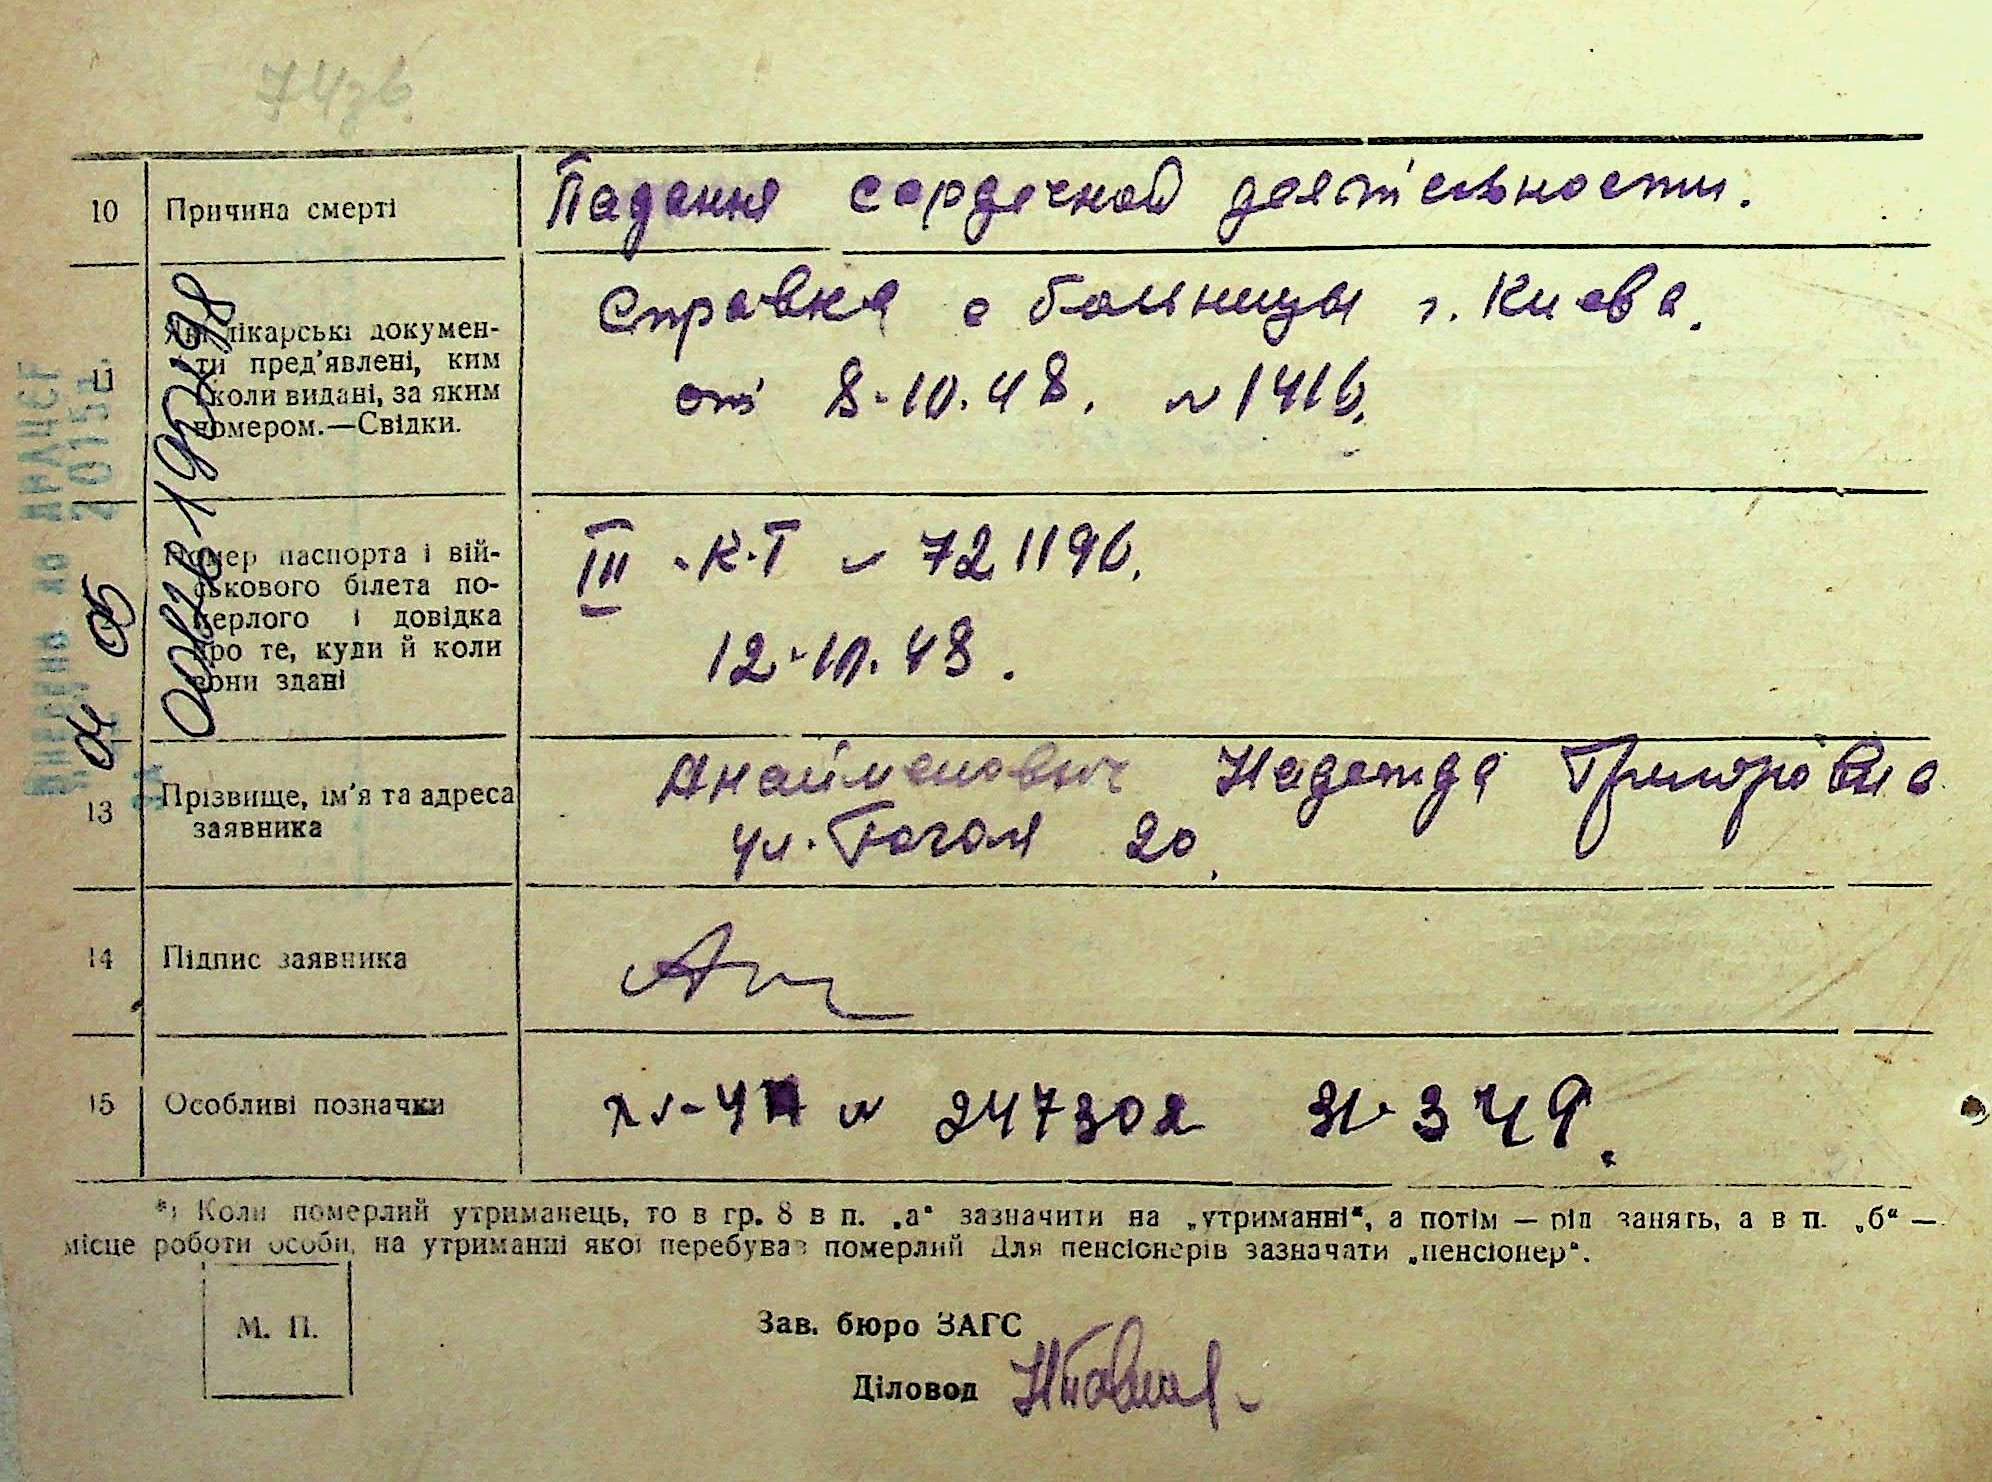 10 Причина смерті Падення сердечной деятельности.
11 Які лікарські докумен-
ти пред'явлені, ким
і коли видані, за яким
номером.—Свідки.
Справка с больницы г. Киева.
от 8-10.48. N 1416.
Номер паспорта і вій-
ськового білета по-
мерлого і довідка
про те, куди й коли
вони здані
III - К.Т N 721196.
12-10.48.
13 Прізвище, ім'я та адреса
заявника
Надежда Григорівна
ул. Гоголя 20.
14 Підпис заявника
15 Особливі позначки
N 247302 349.
*) Коли померлий утриманець, то в гр. 8 в п. „а“ зазначити на „утриманні“, а потім — рід занять, а в п. „б“ —
місце роботи особи, на утриманні якої перебував померлий Для пенсіонерів зазначати „пенсіонер“.
М. П.
Зав. бюро ЗАГС
Діловод